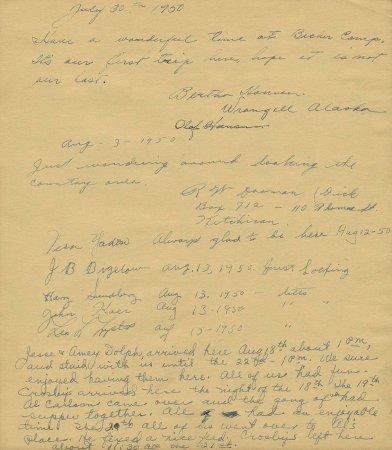 July 30th 1950
Have a wonderful time at Camp.
It's our first trip here, hope it is not
our last.
Bertha Hansen
Wrangell Alaska
Olaf Hansen
Aug - 3 - 1950
Just wandering around looking the
country over.
R W (Dick
Box 712 - 110 Thomas St
Ketchikan
Vera Always glad to be here Aug 12-50
J B Bigelow Aug. 13, 1950. Just looking
Harry Aug 13. 1950 - ditto
John Aug 13-1950 " "
Aug 13-1950 "
Jesse & Amey Dolph, arrived here Aug 18th about 1 P.M,
and staid with us until the 22nd - 1 P.M. We sure
enjoyed having them here. All of us had fun.
Crosbys arrived here the night of the 18th. The 19th
Al Carlson came over and the gang of us had
supper together. All had an enjoyable
time. The 20th all of us went over to Al's
place. He fixed a nice feed. Crosbys left here
about 11:30 AM the 21st.